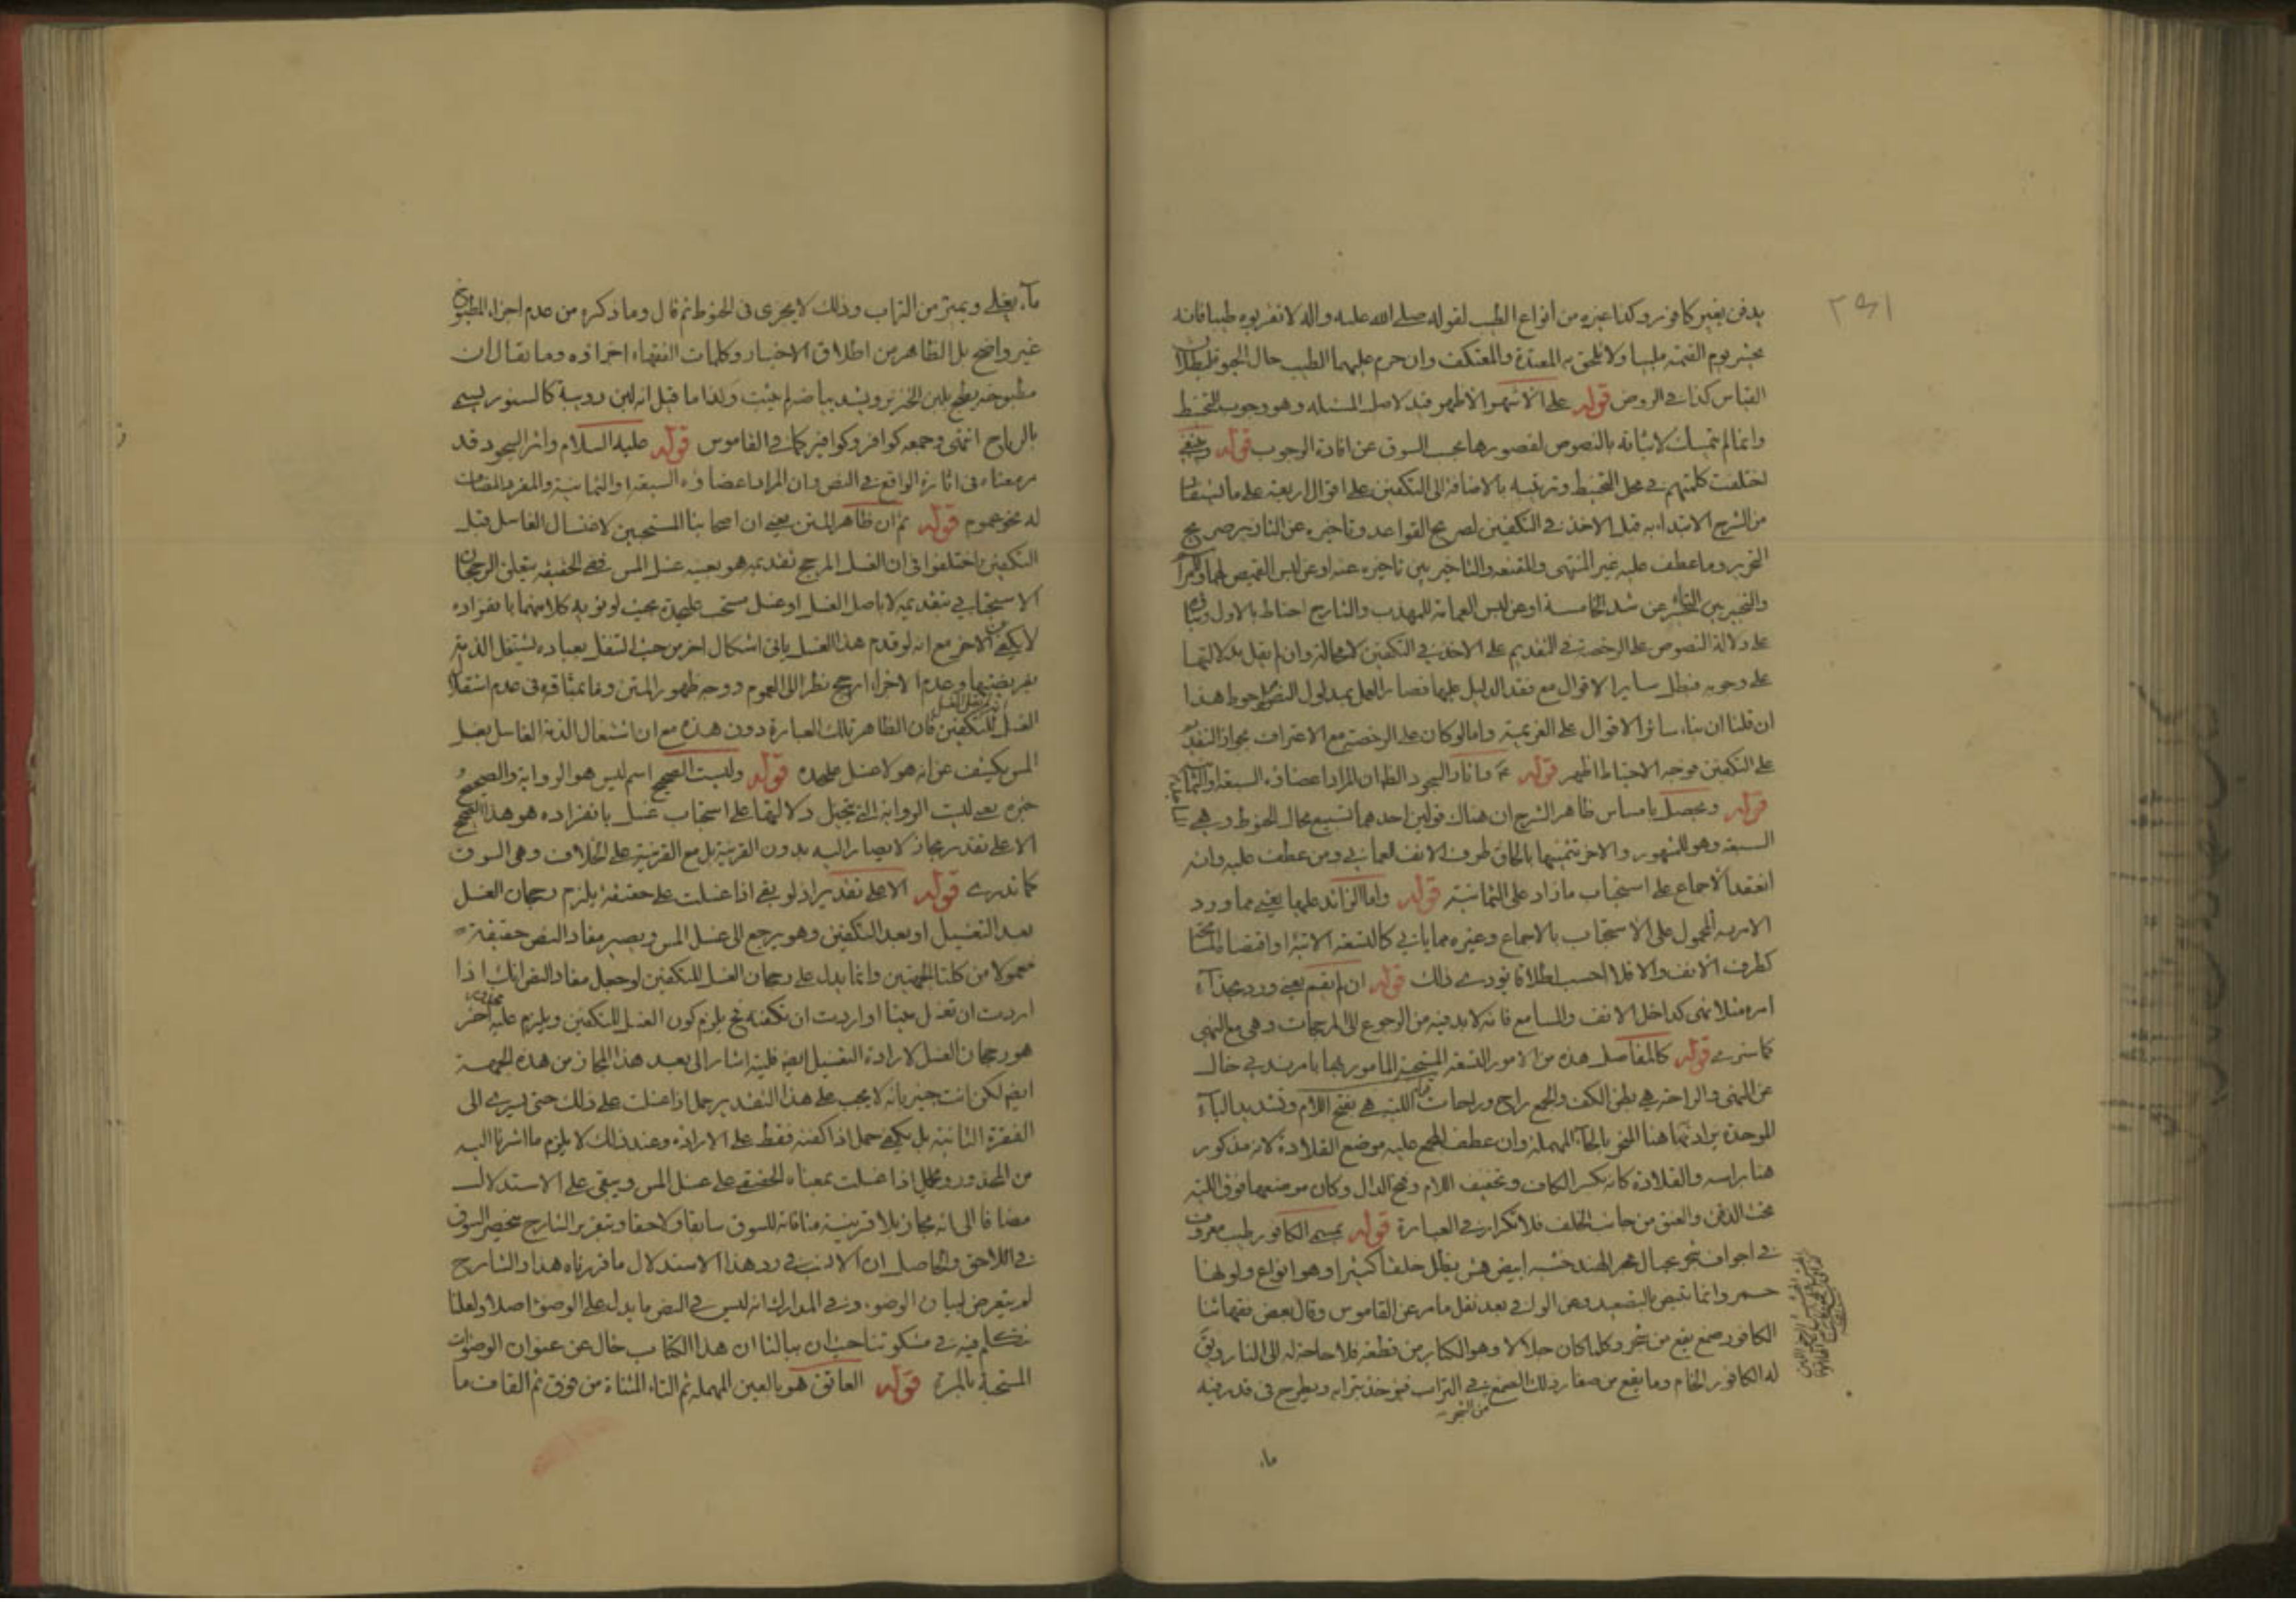 يدفن بغير كافور وكذا غيره من انواع الطيب لقوله صلى الله عليه واله لا تقربوه طيبا فانه
يحشر يوم القيمة ملبيا ولا يلحق به المعتدة والمعتكف وان حرم عليهما الطيب حال الحيوة لبطلان
القياس كذا في الروض قوله على الاشهر الاظهر قيد لاصل المسئله وهو وجوب التحنيط
وانما لم يتمسك لاثباته بالنصوص لقصورها بحسب السوق عن افادة الوجوب قوله
اختلفت كلمتهم في محل التحنيط وترتيبه بالاضافة الى التكفين على اقوال اربعة على ما
من الشرح الابتداء به قبل الاخذ في التكفين لصريح القواعد وتاخيره عن التازير صريح
التحرير وما عطف عليه غير المنتهى والمقنعه والتاخير بين تاخيره عنه او عن لبس القميص
والتخيير بين التاخير عن شد الخامسة او عن لبس العمامة للمهذب والشارح احتاط بالاول
على دلالة النصوص على الرخصة في التقديم على الاخذ في التكفين لا محالة وان لم يقل بدلالتها
على وجوبه فبطل ساير الاقوال مع فقد الدليل عليها فصار العمل بمدلول النص احوط هذا
ان قلنا ان بناء سائر الاقوال على العزيمة واما لو كان على الرخصة مع الاعتراف بجواز التقديم
على التكفين فوجه الاحتياط اظهر قوله واثار السجود الظ ان المراد اعضاؤه السبعة او الثمانية
قوله ويحصل بامساس ظاهر الشرح ان هناك قولين احدهما تسبيع محال الحنوط وهي
السبعة وهو المشهور والاخر تثمينها بالحاق طرف الانف العماني ومن عطف عليه وانه
انعقد الاجماع على استحباب ما زاد على الثمانية قوله واما الزائد عليها يعني مما ورد
الامر به المحمول على الاستحباب بالاجماع وغيره مما ياتي كالتسعة الاتية او اقتضاء
كطرف الانف والا فلا احسب اطلاقا يؤدي ذلك قوله ان لم يقم يعني ورود بحذاء
امره مثلا نهي كداخل الانف والمسامع فانه لا بد فيه من الرجوع الى المرجحات وهي مع النهي
كما سترى قوله كالمفاصل هذه من الامور التسعة المستحبة المامور بها بامر ندبي خال
عن النهي والراحة هي بطن الكف والجمع راح وراحات اللبة هي بفتح اللام وتشديد الباء
الموحدة يراد بها هنا النحر بالحاء المهملة وان عطف المجمع عليه موضع القلادة لانه مذكور
هنا براسه والقلادة كانه بكسر القاف وتخفيف اللام وفتح الدال وكان موضعها فوق اللبة
تحت الذقن والعنق من جانب الخلف فلا تكرار في العبارة قوله بمسمى الكافور طيب معروف
في اجواف شجر بجبال بحر الهند خشبه ابيض هش يظل خلقا كثيرا وهو انواع ولونها
احمر وانما تبيض بالتصعيد وعن الوافي بعد نقل ما مر عن القاموس وقال بعض فقهائنا
الكافور صمغ يقع من شجر وكلما كان جلالا وهو الكبار من قطعه فلا حاجة له الى النار ويق
له الكافور الخام وما يقع من صغار ذلك الصمغ في التراب فيؤخذ بترابه ويطرح في قدر فيه
من الشجر
ماء
ماء يغلى ويميز من التراب وذلك لا يجزى في الحنوط ثم قال وما ذكره من عدم اجزاء المطبوخ
غير واضح بل الظاهر من اطلاق الاخبار وكلمات الفقهاء اجزاؤه وما يقال ان
مطبوخه يطبخ بلبن الخنزير ويشتد بياضه لم يثبت وكذا ما قيل انه لبن دويبة كالسنور يسمى
بالرباح انتهى وجمعه كوافر وكوافير كما في القاموس قوله عليه السلام واثر السجود قد
مر معناه في اثاره الواقع في النص وان المراد اعضاؤه السبعة او الثمانية والمفرد المضاف
له نحو عموم قوله ثم ان ظاهر المتن يعني ان اصحابنا المستحبين لاغتسال الغاسل قبل
التكفين اختلفوا في ان الغسل المرجح تقديمه هو بعينه غسل المس ففي الحقيقة يتعلق الرجحان
الاستحبابي بتقديمه لا باصل الغسل او غسل مستحب عليحدة بحيث لو نوى كلا منهما بانفراده
لا يكفي عن الاخر مع انه لو قدم هذا الغسل ياتي اشكال اخر من حيث التنفل بعبادة يشتغل الذمة
بفريضتها وعدم الاجزاء ارجح نظرا الى العموم ووجه ظهور المتن وفاتمتاقه في عدم استقلال
الغسل للتكفين فان الظاهر تلك العبارة دون هذه مع ان اشتغال الذمة الغاسل بغسل
المس يكشف عن انه هو لا غسل عليحده قوله وليست الصحيح اسم ليس هو الرواية والصحيح
خبره يعني ليست الرواية التي يتخيل دلالتها على استحباب غسل بانفراده هو هذا الصحيح
الا على تقدير مجاز لا يصار اليه بدون القرينة بل مع القرينة على الخلاف وهي السوق
كما تدرى قوله الا على تقدير اذ لو بقي اذا غسلت على حقيقته يلزم رجحان الغسل
بعد التغسيل او بعد التكفين وهو يرجع الى غسل المس ويصير مفاد النص حقيقة
معمولا من كلتا الجهتين وانما يدل على رجحان الغسل للتكفين لو جعل مفاد النص انك اذا
اردت ان تغسل ميتا او اردت ان تكفنه فح يلزم كون الغسل للتكفين ويلزم عليه محذور اخر
هو رجحان الغسل لارادة التغسيل ايضا فلينه اشار الى بعد هذا المجاز من هذه الجهة
ايضا لكن انت خبير بانه لا يجب على هذا التقدير حمل اذا غسلت على ذلك حتى يسرى الى
الفقرة الثانية بل يكفي حمل اذا كفنه فقط على الارادة وعند ذلك لا يلزم ما اشرنا اليه
من المحذور ويحمل اذا غسلت بمعناه الحقيقي على غسل المس ويبقى على الاستدلال
مضافا الى انه مجاز بلا قرينة منافاته للسوق سابقا ولاحقا وبتقرير الشارح تخصيص السوق
في اللاحق والحاصل ان الانسب في رد هذا الاستدلال ما قررناه هذا والشارح
لم يتعرض لبيان الوضوء وفي المدارك انه ليس في النص ما يدل على الوضوء اصلا ولعلنا
نتكلم فيه في مشكوتنا حيث ان ببالنا ان هذا الكتاب خال عن عنوان الوضوءات
المستحبة بالمرة قوله العاتق هو بالعين المهملة ثم التاء المثناة من فوق ثم القاف ما